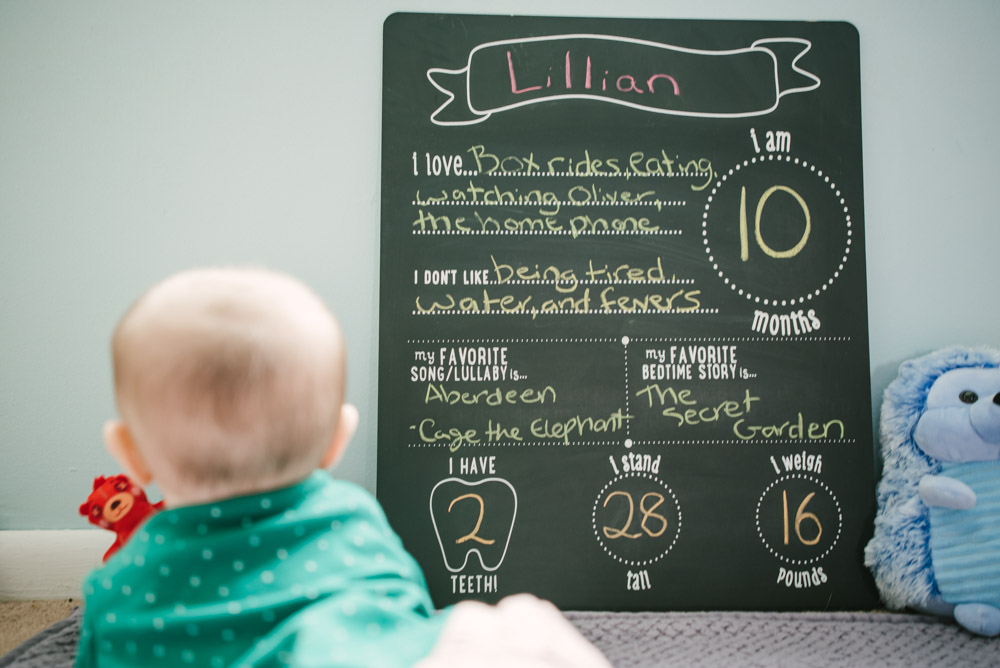 Lillian
i love... Box rides, Eating,
watching Oliver,
the home phone
i am
10
months
I DON'T LIKE... being tired
water, and fever's
my FAVORITE
SONG/LULLABY is...
Aberdeen
-Cage the Elephant
my FAVORITE
BEDTIME STORY is...
The
Secret
Garden
I HAVE
2
TEETH!
I stand
28
tall
I weigh
16
pounds